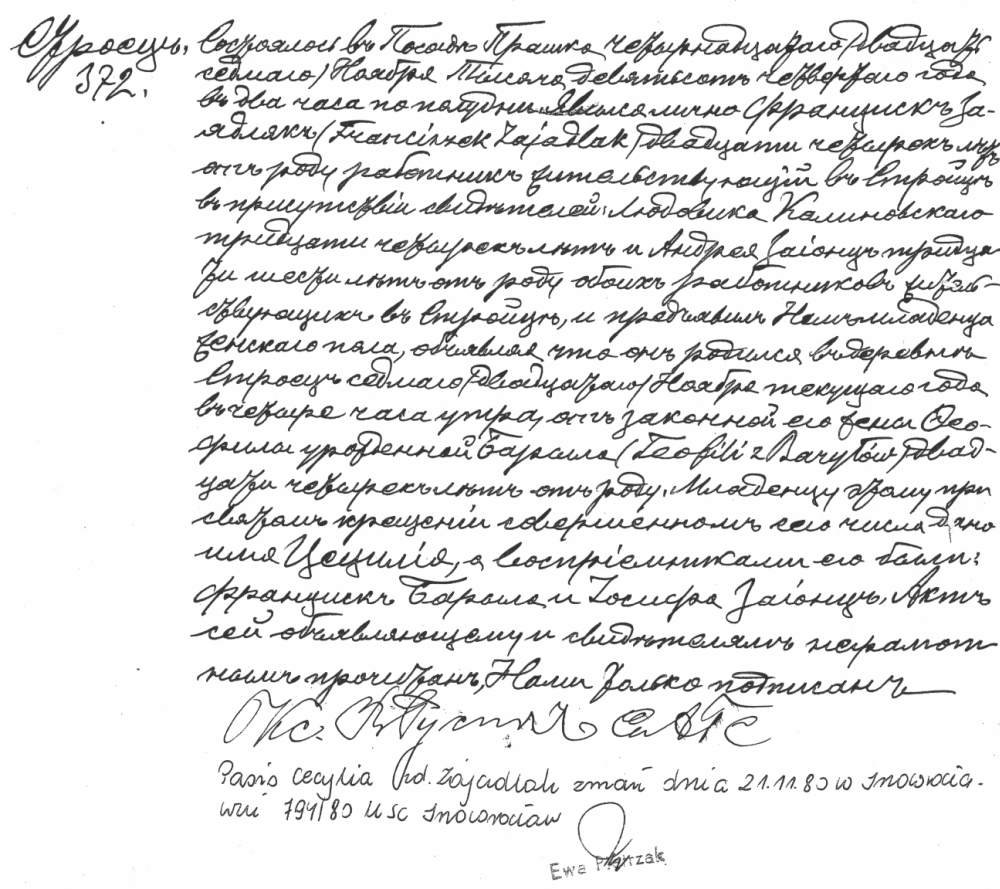 Строецъ.
372.
Состоялось въ Посадѣ Прашка четырнадцатаго /двадцать
седьмаго/ Ноября тысяча девятьсотъ четвертаго года
въ два часа по полудни. Явился лично Францискъ За-
ядлякъ /Franciszek Zajadlak/ двадцати четырехъ лѣтъ
отъ роду работникъ жительствующій въ Стройцѣ
въ присутствіи свидѣтелей: Людовика Калиновскаго
тридцати четырехъ лѣтъ и Андрея Заіонцъ тридца-
ти шести лѣтъ отъ роду обоихъ работниковъ житель-
ствующихъ въ Стройцѣ, и предъявилъ Намъ младенца
женскаго пола, объявляя что онъ родился въ деревнѣ
Строецъ седьмаго /двадцатаго/ Ноября текущаго года
въ четыре часа утра, отъ законной его жены Тео-
филы урожденной Барыла /Teofili z Baryłów/ двад-
цати четырехъ лѣтъ отъ роду. Младенцу этому при
святомъ крещеніи совершенномъ сего числа дано
имя Цецилія, а воспріемниками его были:
Францискъ Барыла и Іосифа Заіонцъ. Актъ
сей объявляющему и свидѣтелямъ неграмот-
нымъ прочитанъ, Нами только подписанъ
Кс.
Cecylia zd. Zajadlak zmarł dnia 21.11.80 w Inowrocła-
wiu 794/80 USC Inowrocław
Ewa